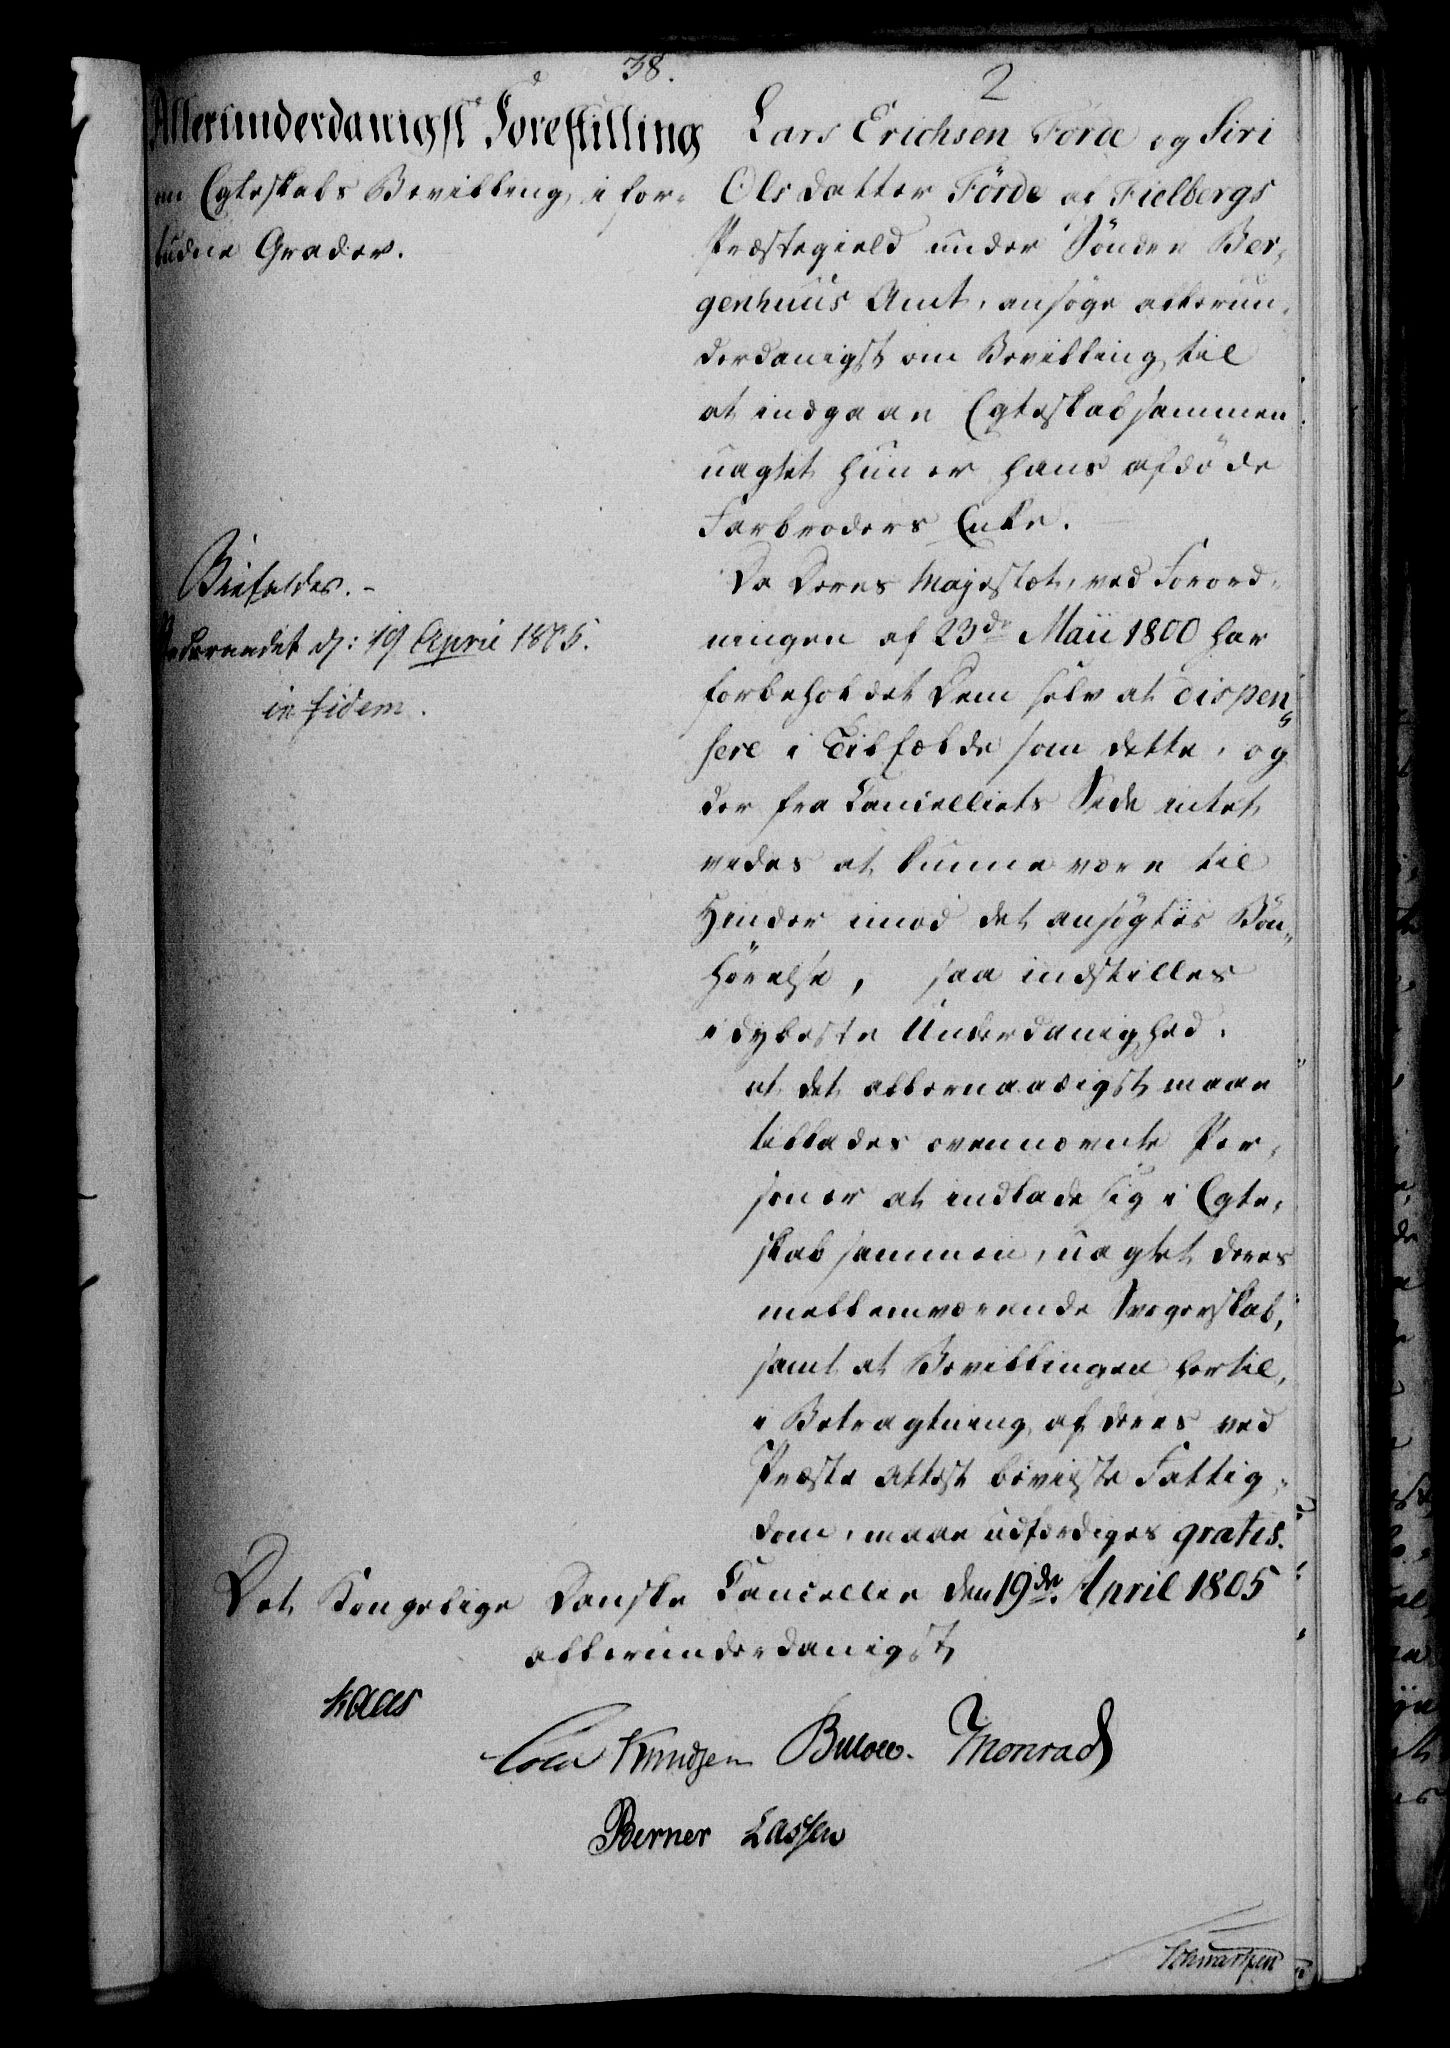 38.
2
Allerunderdanigst Forestilling
om Egteskabs Bevilling i for-
budne Grader.
Lars Erichsen Förde og Siri
Olsdatter Förde af Fielbergs
Præstegield under Sönder Ber-
genhuus Amt, ansøge allerun-
derdanigst om Bevilling til
at indgaae Egteskab sammen
uagtet hun er hans afdöde
Farbroders Enke.
Da Deres Majestæt, ved Forord-
ningen af 23de Maii 1800 har
forbeholdet Dem selv at dispen-
sere i Tilfælde som dette, og
der fra Cancelliets Side intet
vides at kunne være til
Hinder imod det ansøgtes Bön-
hörelse, saa indstilles
i dybeste Underdanighed.
at det allernaadigst maae
tillades ovennævnte Per-
soner at indlade sig i Egte-
skab sammen, uagtet deres
mellemværende Svogerskab,
samt at Bevillingen hertil,
i Betragtning af deres ved
Præste Attest beviiste Fattig-
dom, maae udfærdiges gratis.
Biefaldes.-
d: 19 April 1805.
in fidem.
Det Kongelige Danske Cancellie den 19de April 1805
allerunderdanigst
Kaas
Cold Knudsen Bulow. Monrad
Berner Lassen